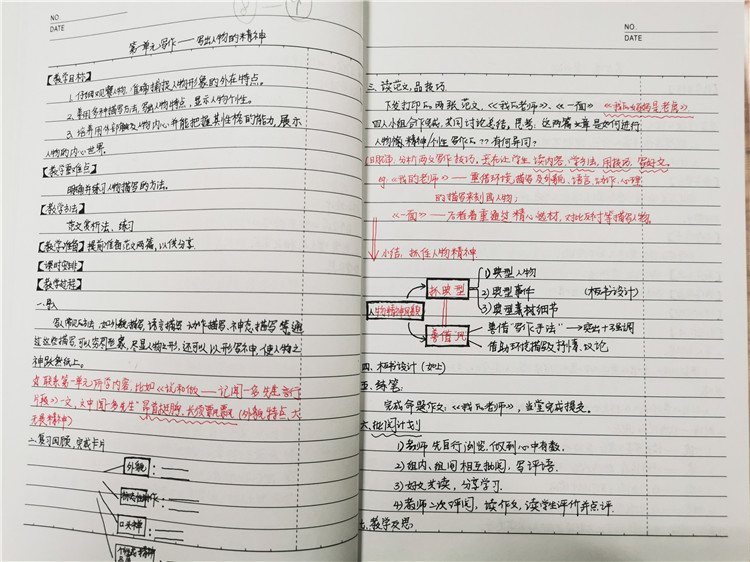 NO.
DATE
第一单元写作——写出人物的精神
【教学目标】
1. 仔细观察人物,准确捕捉人物形象的外在特点。
2. 要用多种描写方法,写出人物特点,显示人物个性。
3. 培养用外部触及人物内心,并能把握其性格的能力,展示
人物的内心世界。
【教学重难点】
明确并练习人物描写的方法。
【教学方法】
范文赏析法、练习
【教学准备】提前准备范文两篇,以供分享
【课时安排】
【教学过程】
一、导入
写人常见方法,如外貌描写、语言描写、动作描写、神态描写等,通
过这些描写,可以穷尽形象,尽显人物之形,还可以以形写神,使人物之
神跃然纸上。
联系第一单元所学内容,比如《说和做——记闻一多先生言行
片段》一文,文中闻一多先生"昂首挺胸,长须飘飘"(外貌特点,大
无畏精神)
二、复习回顾,完成卡片
外貌:
动作:
神:
精神
NO.
DATE
三、读范文,品技巧
下发打印的两张范文,《我的老师》、《一面》
四人小组合作完成,共同讨论总结,思考:这两篇文章是如何进行
人物精神/个性写作的??有何异同?
明确:分析两文写作技巧,要求让学生读内容、学方法,用技巧,写好文。
《我的老师》——重借环境描写及外貌、语言、动作、心理
的描写来刻画人物;
《一面》——着重通过精心选材,对比反衬等描写人物。
小结:抓住人物精神
人物精神
抓典型
1) 典型人物
2) 典型事件 (板书设计)
3) 典型素材细节
善借
善借"写作手法"→突出+强调
借助环境描写及抒情、议论
四、板书设计(如上)
五、练笔:
完成命题作文:《我的老师》,当堂完成提交。
六、批阅计划
1) 老师先自行浏览,做到心中有数。
2) 组内、组间相互批阅,写评语。
3) 好文共读,分享学习。
4) 教师二次评阅,读作文,读学生评价并点评。
七、教学反思: